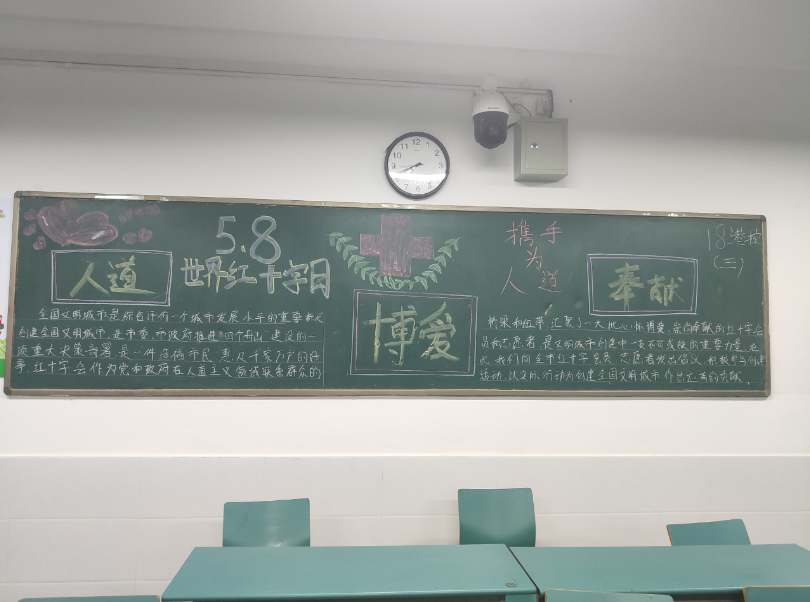 人道
5.8
世界红十字日
博爱
携手
为
人道
奉献
18港控
(三)
全国文明城市是综合评价一个城市发展水平的重要标志
创建全国文明城市,是市委、市政府推进"四个舟山"建设的一
项重大决策部署,是一件造福市民,惠及千家万户的好
事,红十字会作为党和政府在人道主义领域联系群众的
桥梁和纽带,汇聚了一大批心怀博爱,崇尚奉献的红十字会
员和志愿者,是文明城市创建中一支不可或缺的重要力量,在
此,我们向全市红十字会员、志愿者发出倡议,积极参与创建
活动,以实际行动为创建全国文明城市作出应有的贡献。